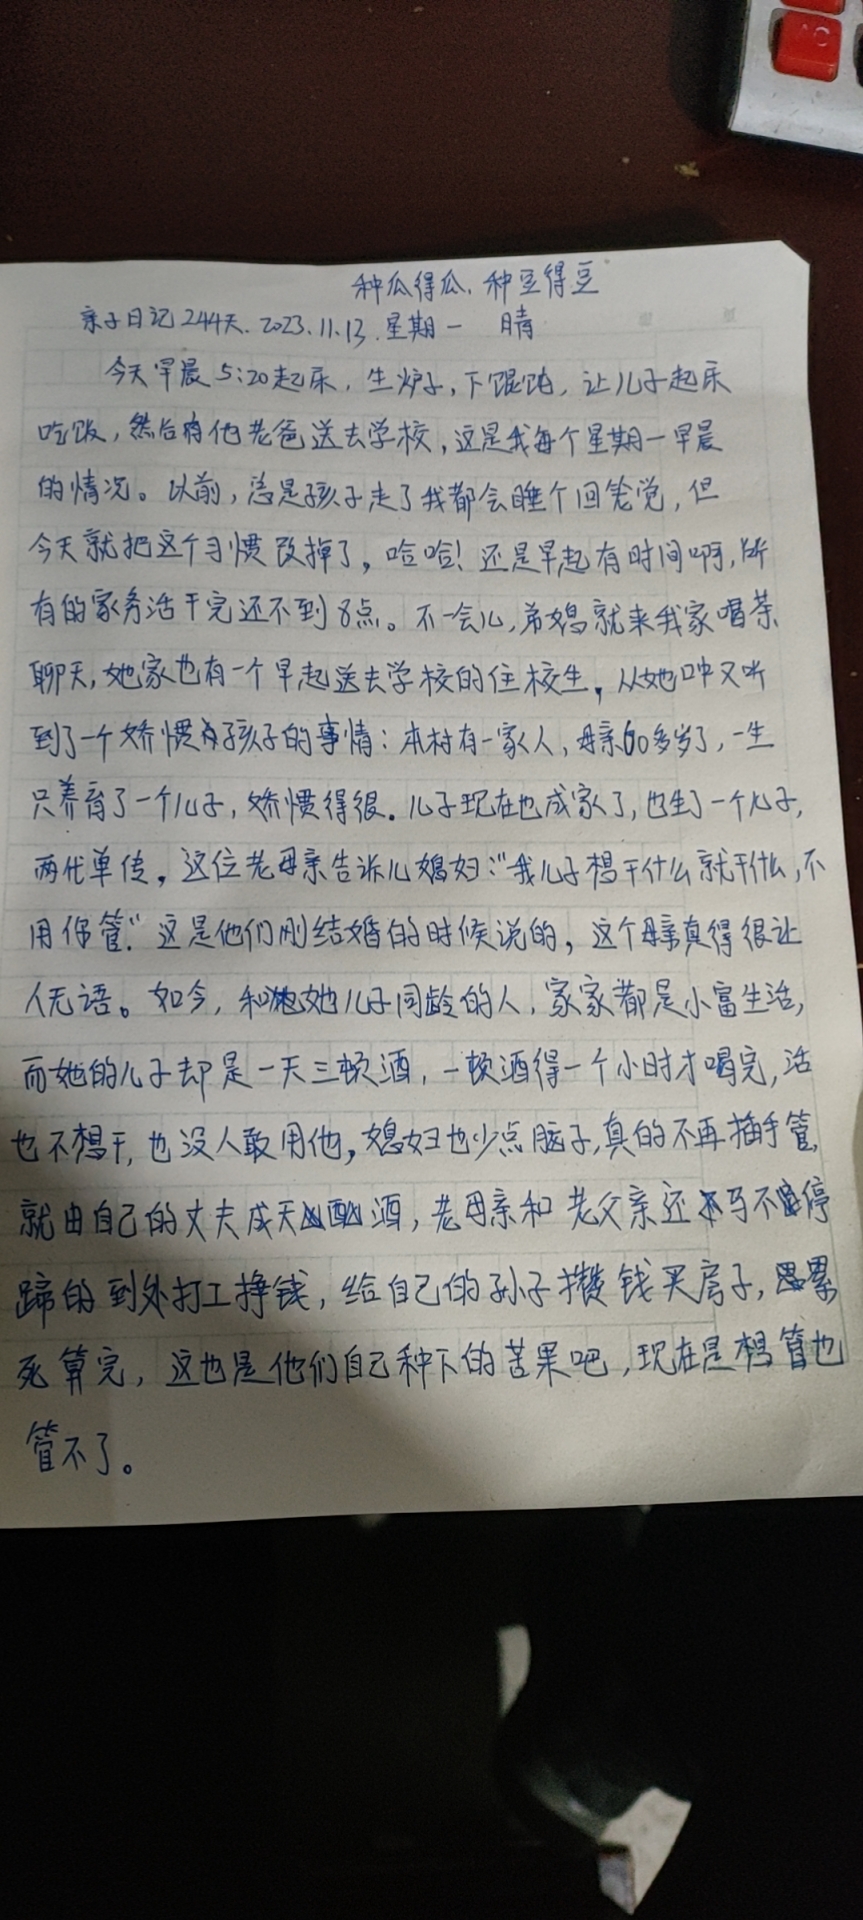 种瓜得瓜、种豆得豆
亲子日记244天. 2023.11.13.星期一 晴
今天早晨5:20起床，生炉子，下馄饨，让儿子起床
吃饭，然后有他老爸送去学校，这是我每个星期一早晨
的情况。以前，总是孩子走了我都会睡个回笼觉，但
今天就把这个习惯改掉了，哈哈！还是早起有时间啊，所
有的家务活干完还不到8点。不一会儿，弟媳就来我家喝茶
聊天，她家也有一个早起送去学校的住校生，从她口中又听
到了一个娇惯孩子的事情：本村有一家人，母亲60多岁了，一生
只养育了一个儿子，娇惯得很。儿子现在也成家了，也生了一个儿子，
两代单传。这位老母亲告诉儿媳妇：“我儿子想干什么就干什么，不
用你管.”这是他们刚结婚的时候说的，这个母亲真得很让
人无语。如今，和她儿子同龄的人，家家都是小富生活，
而她的儿子却是一天三顿酒，一顿酒得一个小时才喝完，活
也不想干，也没人敢用他，媳妇也少点脑子，真的不再插手管，
就由自己的丈夫成天酗酒，老母亲和老父亲还马不停
蹄的到外打工挣钱，给自己的孙子攒钱买房子，累
死算完，这也是他们自己种下的苦果吧，现在是想管也
管不了。